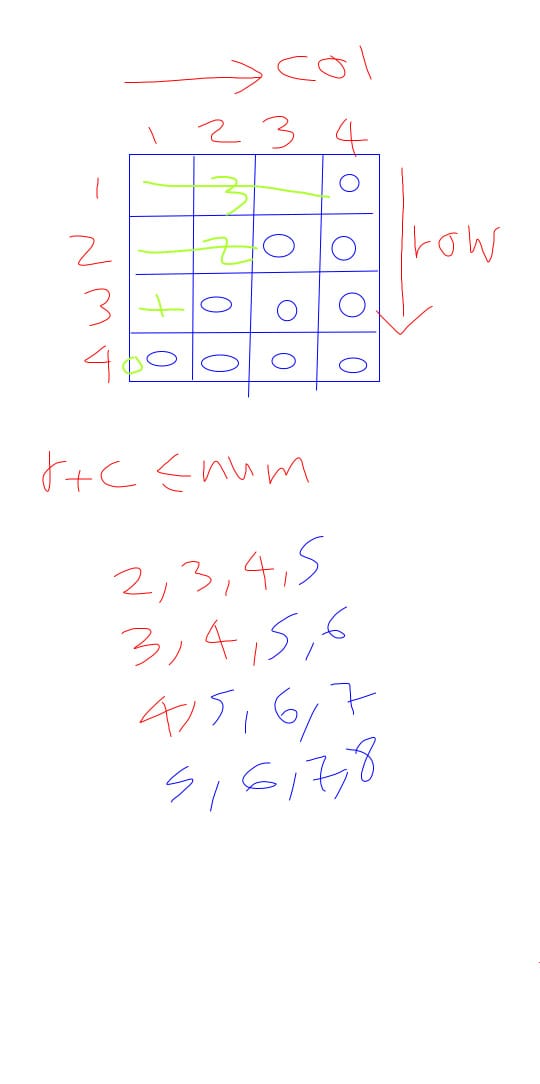 col
1 2 3 4
1 3 O
2 2 O O
3 1 O O O
4 0 O O O O
row
r+c ≤num
2,3,4,5
3,4,5,6
4,5,6,7
5,6,7,8